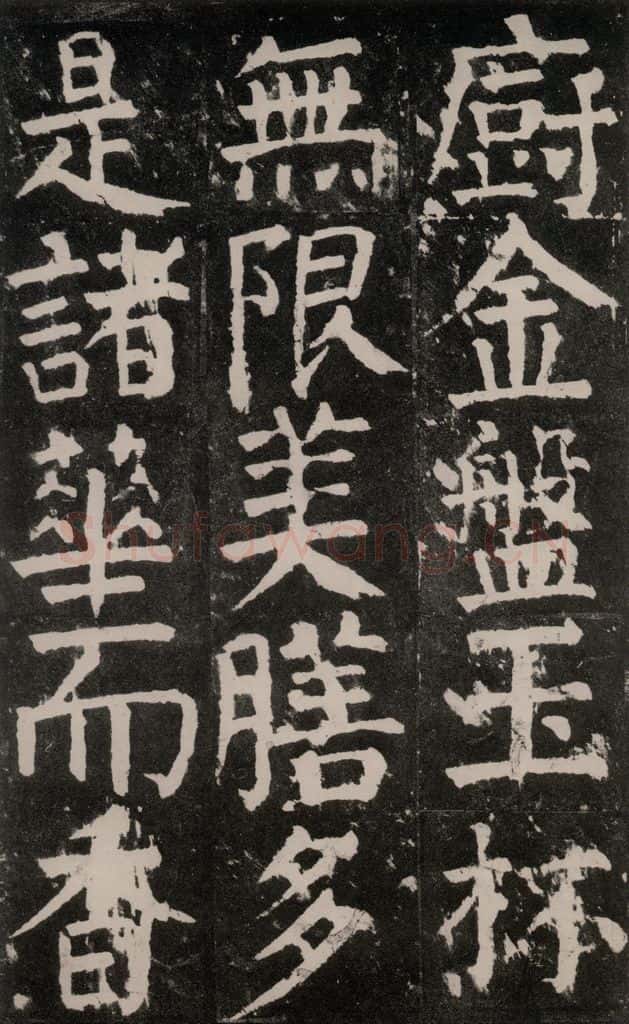 廚金盤玉杯
無限美膳多
是諸華而香
Shufawang.CN